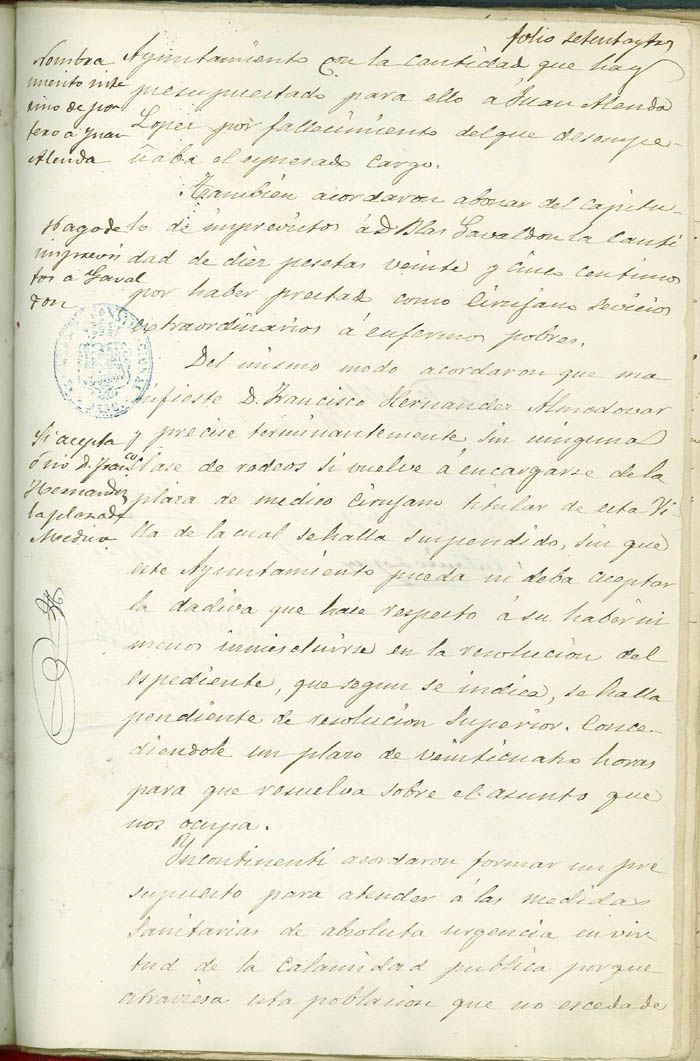 folio setenta y tres
Nombra
miento inte
rino de por
tero a Juan
Alenda
Ayuntamiento con la cantidad que hay
presupuestado para ello á Juan Alenda
Lopez por fallecimiento del que desempe-
ñaba el espresado cargo.
Tambien acordaron abonar del capitu-
Pago de
imprevis
tos a Gaval
don
lo de imprevistos á D. Blas Gavaldon la canti
dad de diez pesetas veinte y cinco centimos
por haber prestado como Cirujano servicios
extraordinarios á enfermos pobres.
Del mismo modo acordaron que ma
nifieste D. Francisco Hernandez Almodovar
Si acepta
ó no D. Franco
Hernandez
la plaza de
Medico
y precise terminantemente sin ninguna
clase de rodeos si vuelve á encargarse de la
plaza de medico cirujano titular de esta Vi-
lla de la cual se halla suspendido, sin que
este Ayuntamiento pueda ni deba aceptar
la dadiva que hace respecto á su haber ni
menos inmiscluirse en la resolucion del
espediente, que segun se indica, se halla
pendiente de resolucion Superior. Conce-
diendole un plazo de veinticuatro horas
para que resuelva sobre el asunto que
nos ocupa.
Yncontinenti acordaron formar un pre
supuesto para atender á las medidas
sanitarias de absoluta urgencia en vir-
tud de la calamidad publica porque
atraviesa esta poblacion que no esceda de